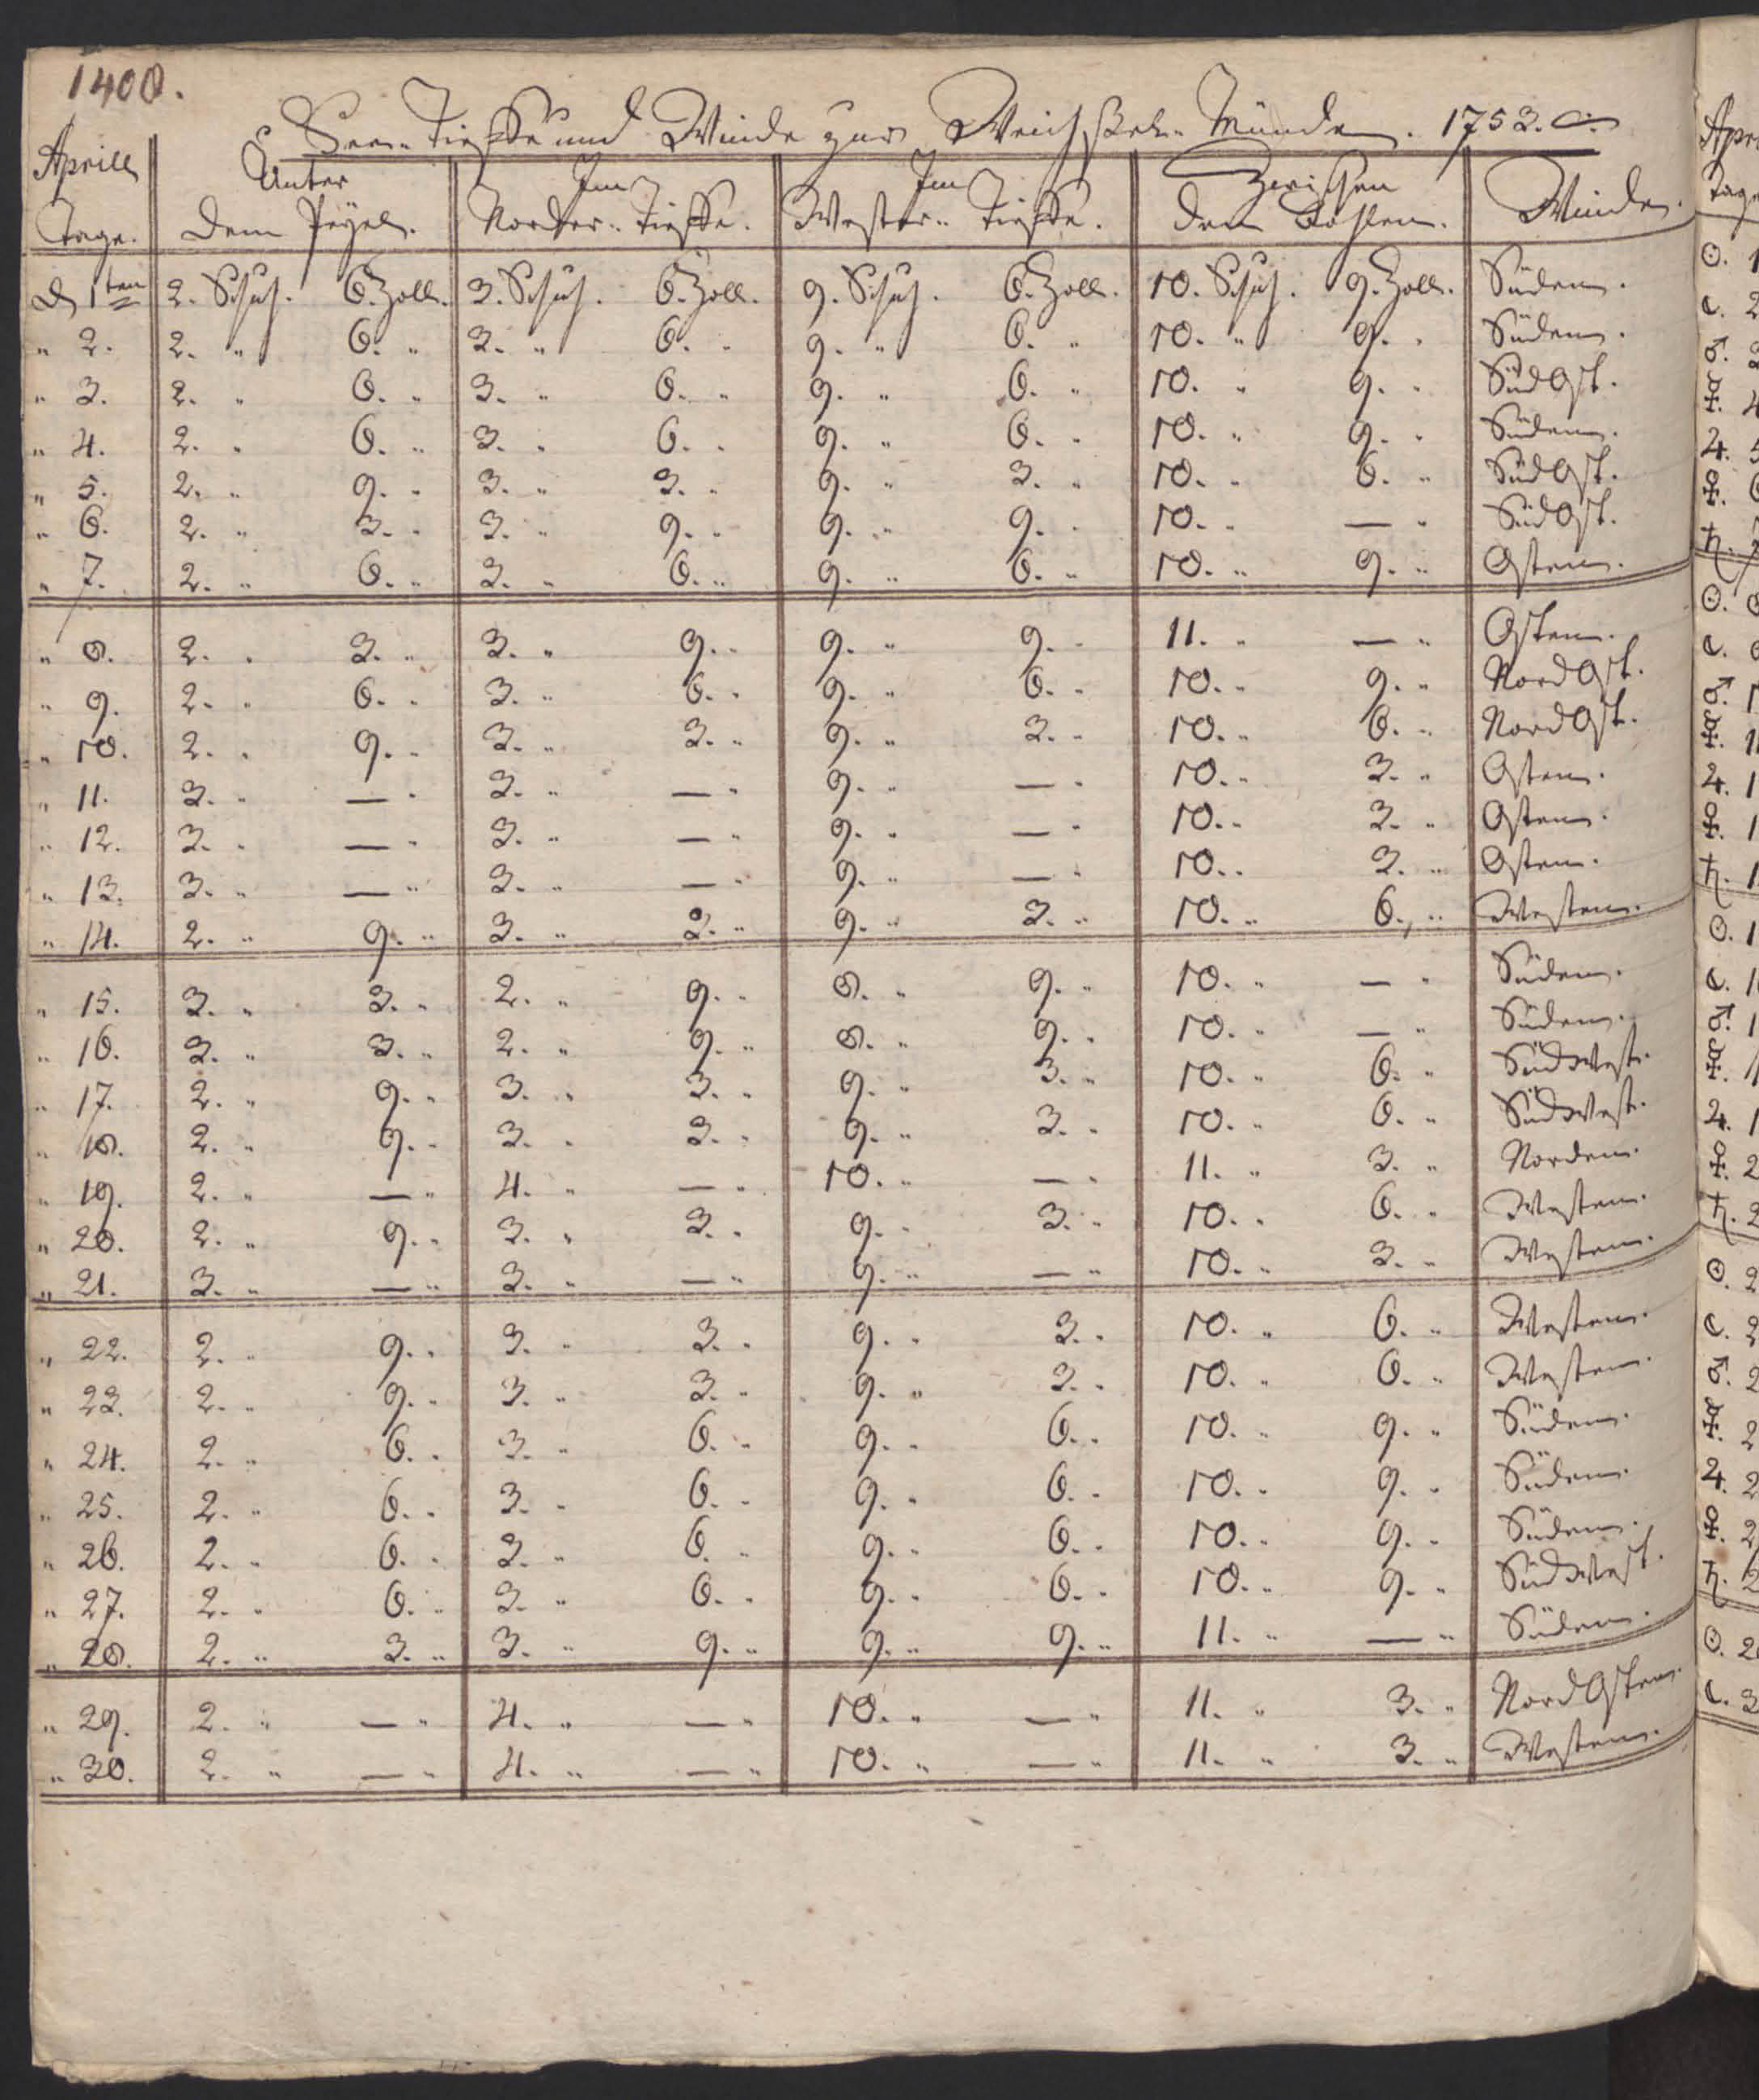 1408.
See- Tieffe und Winde zur Weichßel- Münde. 1753.
Aprill Unter Im Im Zwischen Winde.
Tage. dem Pegel. Norder- Tieffe. Wester- Tieffe. den Bohlen.
D 1ten 2. Schuh. 6. Zoll. 3. Schuh. 6. Zoll. 9. Schuh. 6. Zoll. 10. Schuh. 9. Zoll. Süden.
" 2. 2. " 6. " 3. " 6. " 9. " 6. " 10. " 9. " Süden.
" 3. 2. " 6. " 3. " 6. " 9. " 6. " 10. " 9. " SüdOst.
" 4. 2. " 6. " 3. " 6. " 9. " 6. " 10. " 9. " Süden.
" 5. 2. " 9. " 3. " 3. " 9. " 3. " 10. " 6. " SüdOst.
" 6. 2. " 3. " 3. " 9. " 9. " 9. " 10. " — " SüdOst.
" 7. 2. " 6. " 3. " 6. " 9. " 6. " 10. " 9. " Osten.
" 8. 2. " 3. " 3. " 9. " 9. " 9. " 11. " — " Osten.
" 9. 2. " 6. " 3. " 6. " 9. " 6. " 10. " 9. " NordOst.
" 10. 2. " 9. " 3. " 3. " 9. " 3. " 10. " 6. " NordOst.
" 11. 3. " — " 3. " — " 9. " — " 10. " 3. " Osten.
" 12. 3. " — " 3. " — " 9. " — " 10. " 3. " Osten.
" 13. 3. " — " 3. " — " 9. " — " 10. " 3. " Osten.
" 14. 2. " 9. " 3. " 3. " 9. " 3. " 10. " 6. " Westen.
" 15. 3. " 3. " 2. " 9. " 8. " 9. " 10. " — " Süden.
" 16. 3. " 3. " 2. " 9. " 8. " 9. " 10. " — " Süden.
" 17. 2. " 9. " 3. " 3. " 9. " 3. " 10. " 6. " SüdWest.
" 18. 2. " 9. " 3. " 3. " 9. " 3. " 10. " 6. " SüdWest.
" 19. 2. " — " 4. " — " 10. " — " 11. " 3. " Norden.
" 20. 2. " 9. " 3. " 3. " 9. " 3. " 10. " 6. " Westen.
" 21. 3. " — " 3. " — " 9. " — " 10. " 3. " Westen.
" 22. 2. " 9. " 3. " 3. " 9. " 3. " 10. " 6. " Westen.
" 23. 2. " 9. " 3. " 3. " 9. " 3. " 10. " 6. " Westen.
" 24. 2. " 6. " 3. " 6. " 9. " 6. " 10. " 9. " Süden.
" 25. 2. " 6. " 3. " 6. " 9. " 6. " 10. " 9. " Süden.
" 26. 2. " 6. " 3. " 6. " 9. " 6. " 10. " 9. " Süden.
" 27. 2. " 6. " 3. " 6. " 9. " 6. " 10. " 9. " SüdWest.
" 28. 2. " 3. " 3. " 9. " 9. " 9. " 11. " — " Süden.
" 29. 2. " — " 4. " — " 10. " — " 11. " 3. " NordOsten.
" 30. 2. " — " 4. " — " 10. " — " 11. " 3. " Westen.